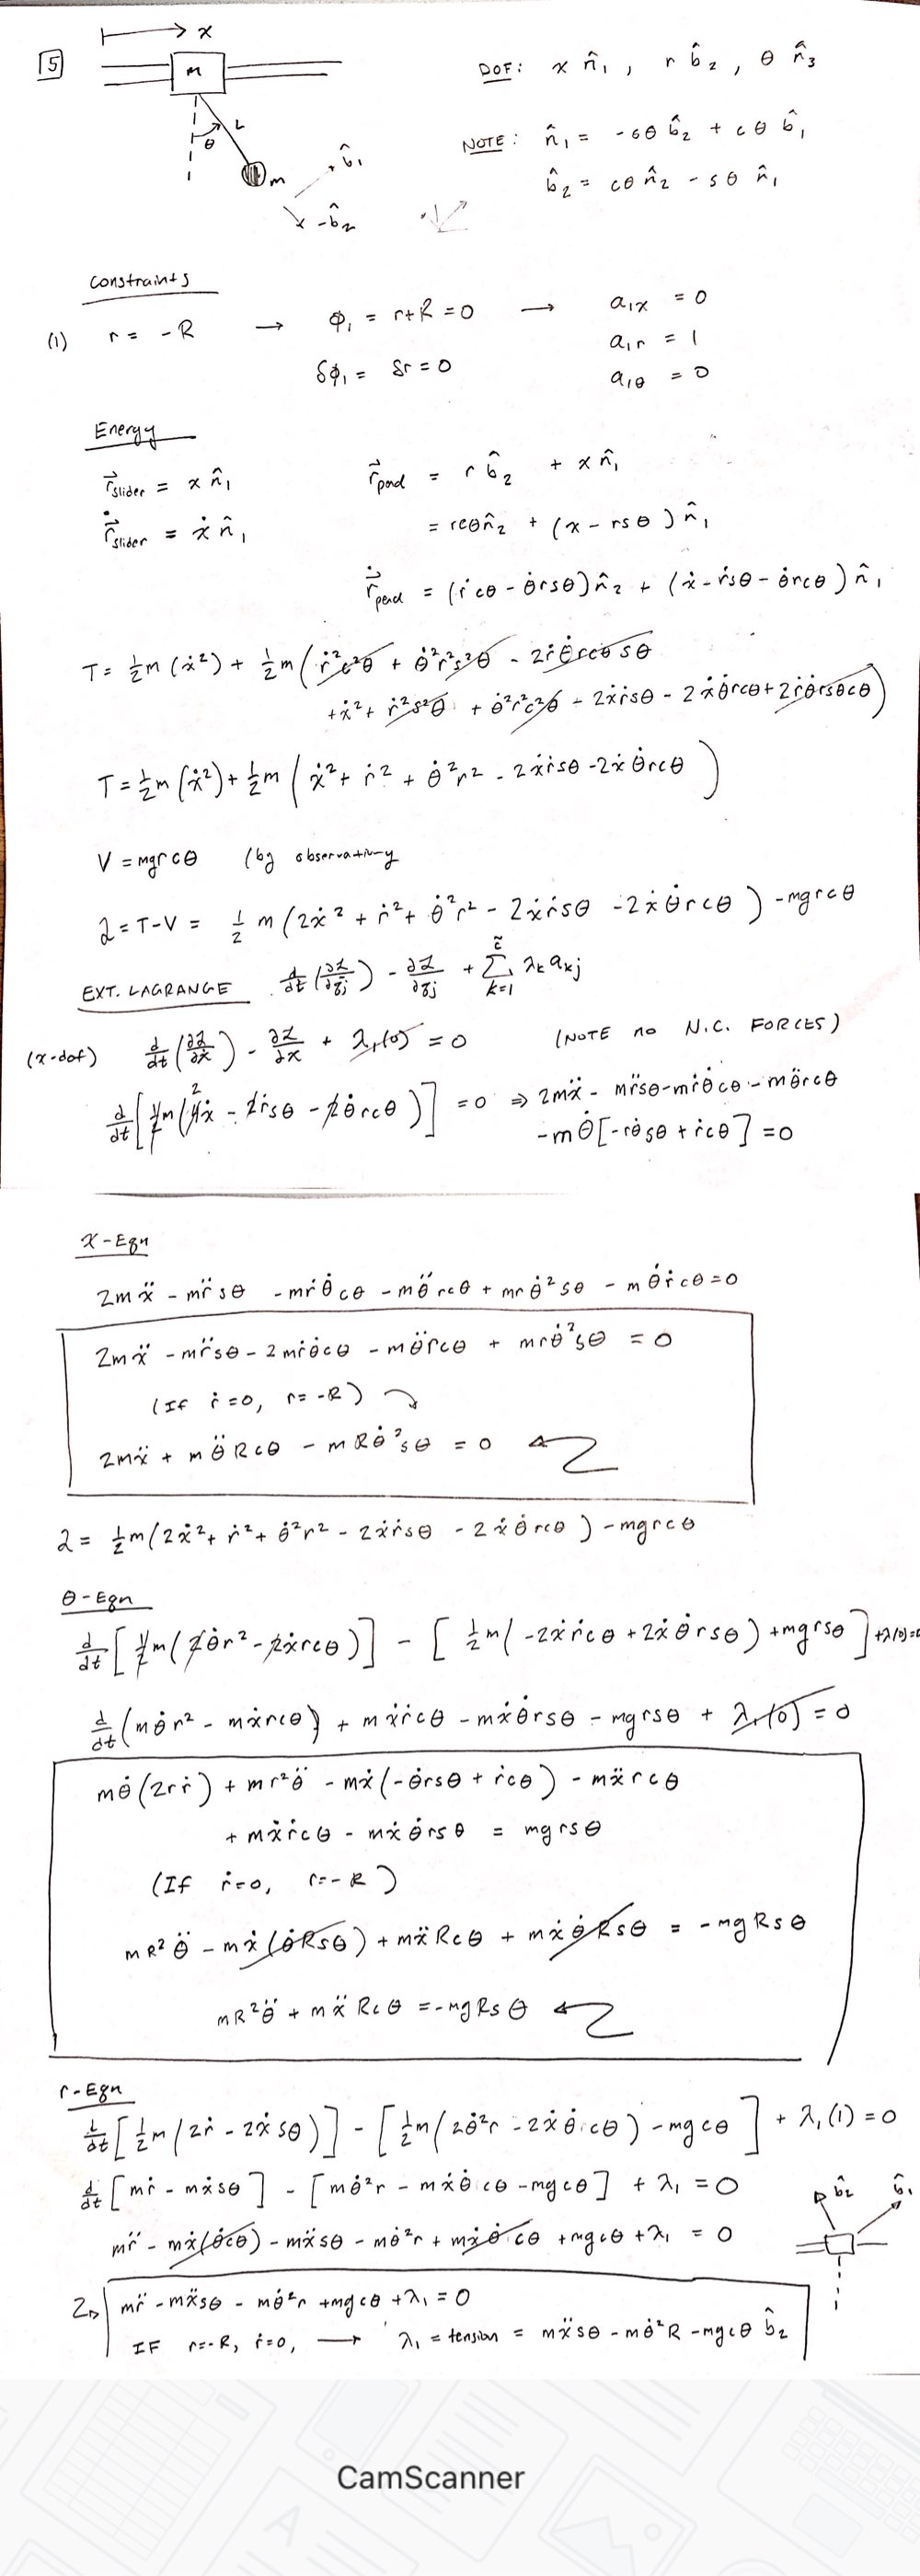 5
x
m
L
θ
m
b̂₁
-b̂₂
DOF: x n̂₁ , r b̂₂ , θ n̂₃
NOTE: n̂₁ = -sθ b̂₂ + cθ b̂₁
b̂₂ = cθ n̂₂ - sθ n̂₁
Constraints
(1) r = -R → ϕ₁ = r+R = 0 → a₁ₓ = 0
a₁ᵣ = 1
δϕ₁ = δr = 0
a₁θ = 0
Energy
r⃗slider = x n̂₁
r⃗pend = r b̂₂ + x n̂₁
= rcθn̂₂ + (x - rsθ) n̂₁
ṙ⃗slider = ẋ n̂₁
ṙ⃗pend = (ṙcθ - θ̇rsθ)n̂₂ + (ẋ - ṙsθ - θ̇rcθ) n̂₁
T = ½m(ẋ²) + ½m(ṙ²c²θ + θ̇²r²s²θ - 2ṙθ̇rcθsθ
+ẋ² + ṙ²s²θ + θ̇²r²c²θ - 2ẋṙsθ - 2ẋθ̇rcθ + 2ṙθ̇rsθcθ)
T = ½m(ẋ²) + ½m(ẋ² + ṙ² + θ̇²r² - 2ẋṙsθ - 2ẋθ̇rcθ)
V = mgrcθ (by observation)
ℒ = T-V = ½m(2ẋ² + ṙ² + θ̇²r² - 2ẋṙsθ - 2ẋθ̇rcθ) - mgrcθ
EXT. LAGRANGE d/dt(∂ℒ/∂q̇j) - ∂ℒ/∂qj + Σ k=1 λₖaₖj
(x-dof) d/dt(∂ℒ/∂ẋ) - ∂ℒ/∂x + λ₁(0) = 0 (NOTE no N.C. FORCES)
d/dt[½m(4ẋ - 2ṙsθ - 2θ̇rcθ)] = 0 ⇒ 2mẍ - mr̈sθ - mṙθ̇cθ - mθ̈rcθ
-mθ̇[-rθ̇sθ + ṙcθ] = 0
x-Eqn
2mẍ - mr̈sθ - mṙθ̇cθ - mθ̈rcθ + mrθ̇²sθ - mθ̇ṙcθ = 0
2mẍ - mr̈sθ - 2mṙθ̇cθ - mθ̈rcθ + mrθ̇²sθ = 0
(If ṙ=0, r=-R)
2mẍ + mθ̈Rcθ - mRθ̇²sθ = 0
ℒ = ½m(2ẋ² + ṙ² + θ̇²r² - 2ẋṙsθ - 2ẋθ̇rcθ) - mgrcθ
θ-Eqn
d/dt[½m(2θ̇r² - 2ẋrcθ)] - [½m(-2ẋṙcθ + 2ẋθ̇rsθ) + mgrsθ] + λ₁(0)=0
d/dt(mθ̇r² - mẋrcθ) + mẋṙcθ - mẋθ̇rsθ - mgrsθ + λ₁(0) = 0
mθ̇(2rṙ) + mr²θ̈ - mẋ(-θ̇rsθ + ṙcθ) - mẍrcθ
+ mẋṙcθ - mẋθ̇rsθ = mgrsθ
(If ṙ=0, r=-R)
mR²θ̈ - mẋ(θ̇Rsθ) + mẍRcθ + mẋθ̇Rsθ = -mgRsθ
mR²θ̈ + mẍRcθ = -mgRsθ
r-Eqn
d/dt[½m(2ṙ - 2ẋsθ)] - [½m(2θ̇²r - 2ẋθ̇cθ) - mgcθ] + λ₁(1) = 0
d/dt[mṙ - mẋsθ] - [mθ̇²r - mẋθ̇cθ - mgcθ] + λ₁ = 0
b̂₂ b̂₁
mr̈ - mẋ(θ̇cθ) - mẍsθ - mθ̇²r + mẋθ̇cθ + mgcθ + λ₁ = 0
mr̈ - mẍsθ - mθ̇²r + mgcθ + λ₁ = 0
IF r=-R, ṙ=0, → λ₁ = tension = mẍsθ - mθ̇²R - mgcθ b̂₂
CamScanner